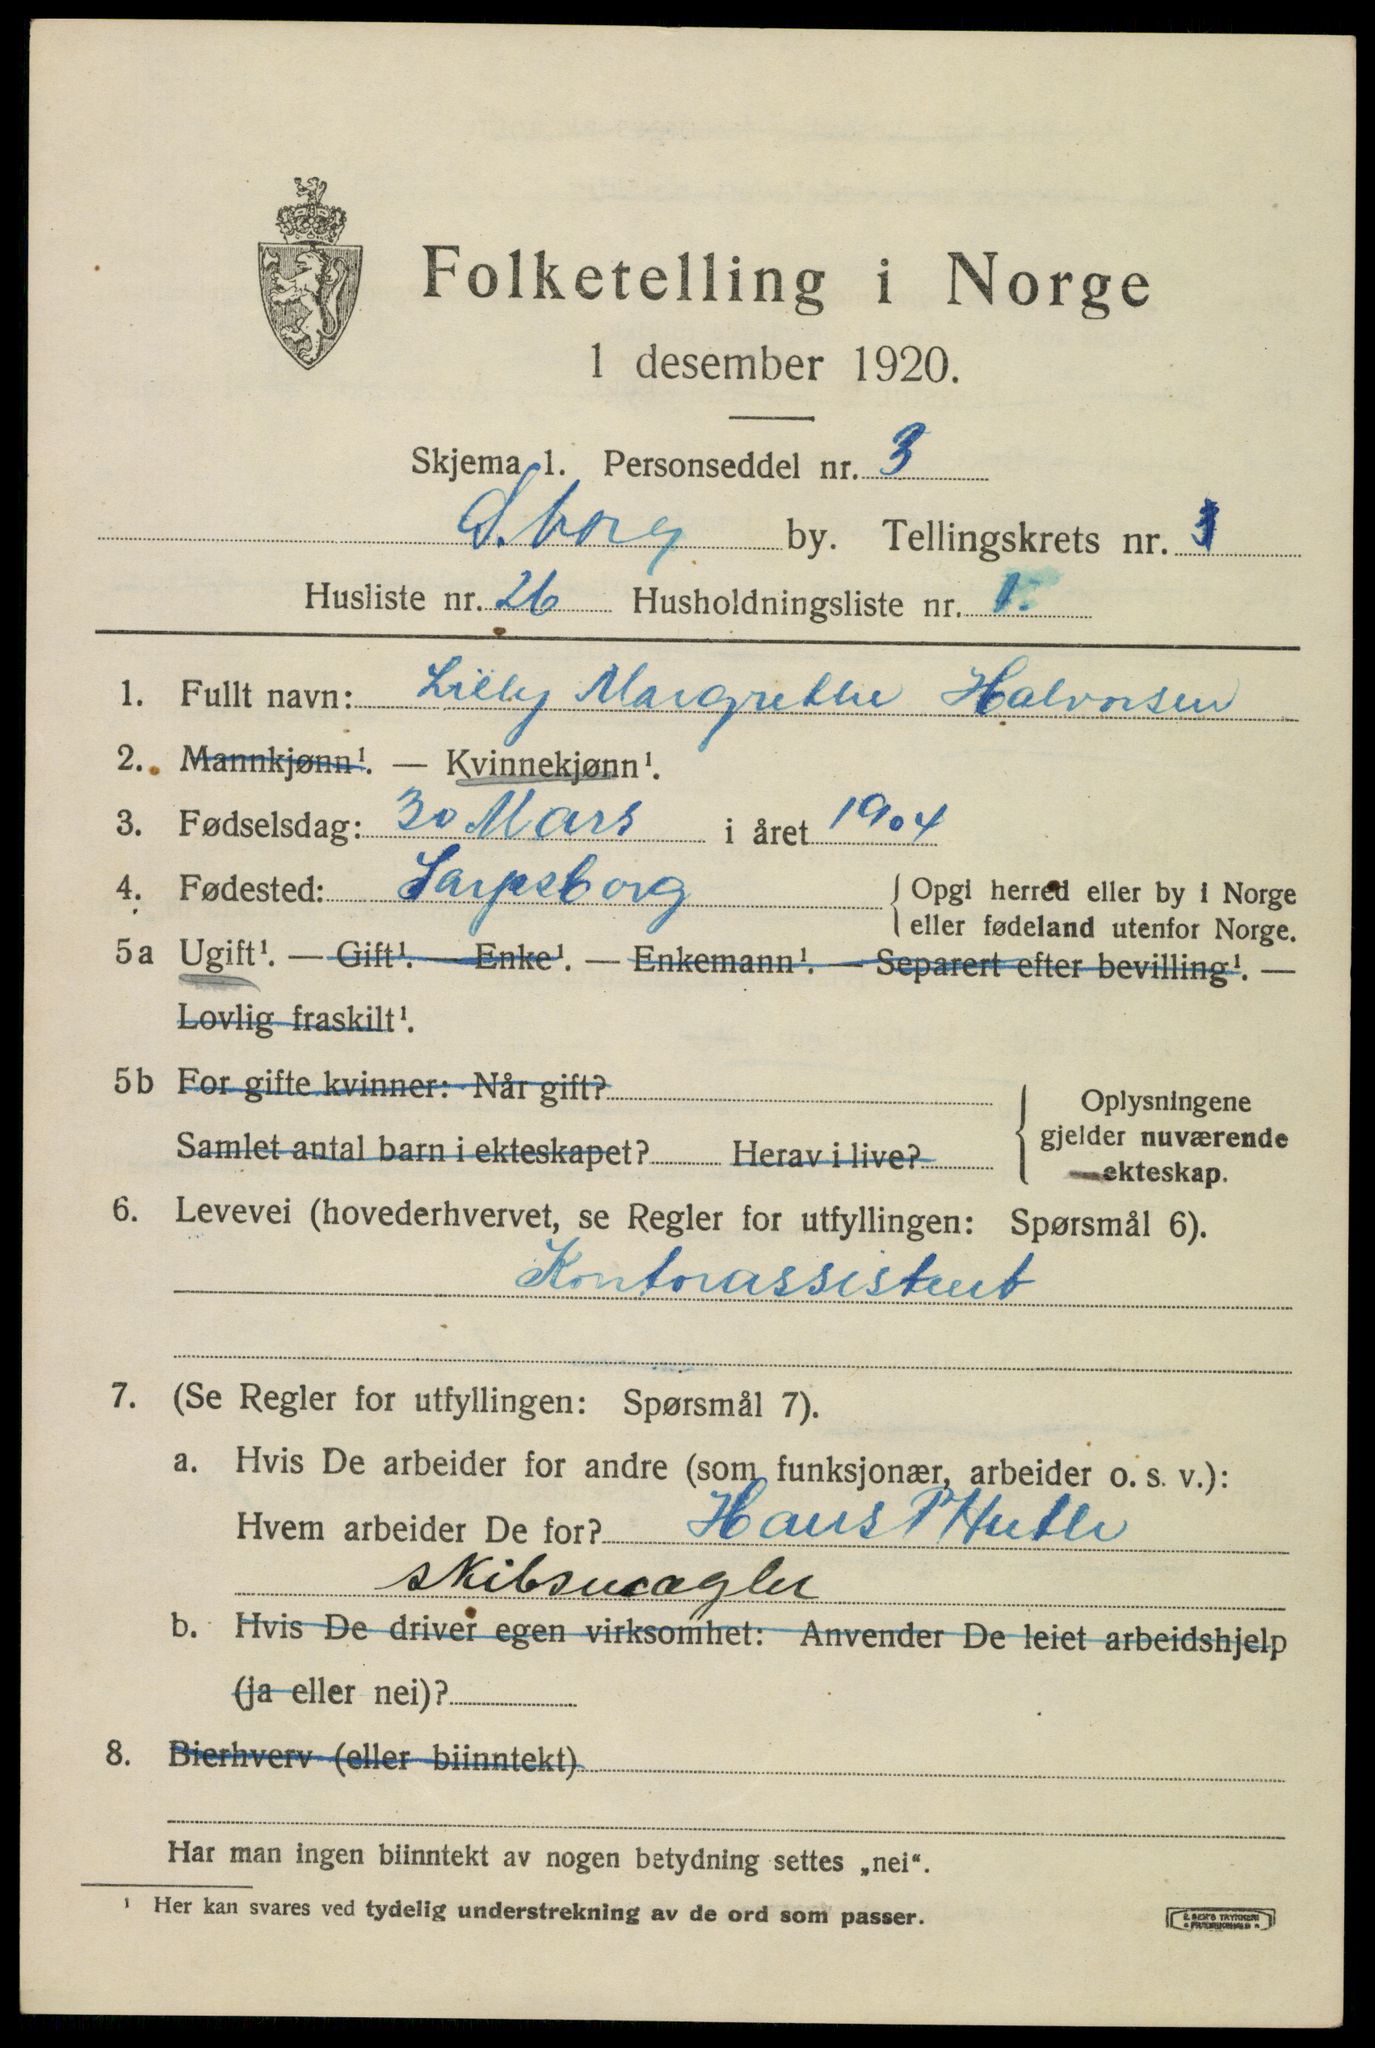 Folketelling i Norge
1 desember 1920.
Skjema 1. Personseddel nr. 3
S.borg by. Tellingskrets nr.
Husliste nr. 26 Husholdningsliste nr. 1.
1. Fullt navn: Lilly Margrethe Halvorsen
2. Mannkjønn¹. — Kvinnekjønn¹.
3. Fødselsdag: 30 Mars i året 1904
4. Fødested: Sarpsborg { Opgi herred eller by i Norge
eller fødeland utenfor Norge.
5a Ugift¹. — Gift¹. — Enke¹. — Enkemann¹. — Separert efter bevilling¹. —
Lovlig fraskilt¹.
5b For gifte kvinner: Når gift?
Samlet antal barn i ekteskapet? Herav i live?
{ Oplysningene
gjelder nuværende
ekteskap.
6. Levevei (hovederhvervet, se Regler for utfyllingen: Spørsmål 6).
Kontorassistent
7. (Se Regler for utfyllingen: Spørsmål 7).
a. Hvis De arbeider for andre (som funksjonær, arbeider o. s. v.):
Hvem arbeider De for? Hans P
skibsmægler
b. Hvis De driver egen virksomhet: Anvender De leiet arbeidshjelp
(ja eller nei)?
8. Bierhverv (eller biinntekt)
Har man ingen biinntekt av nogen betydning settes „nei“.
¹ Her kan svares ved tydelig understrekning av de ord som passer.